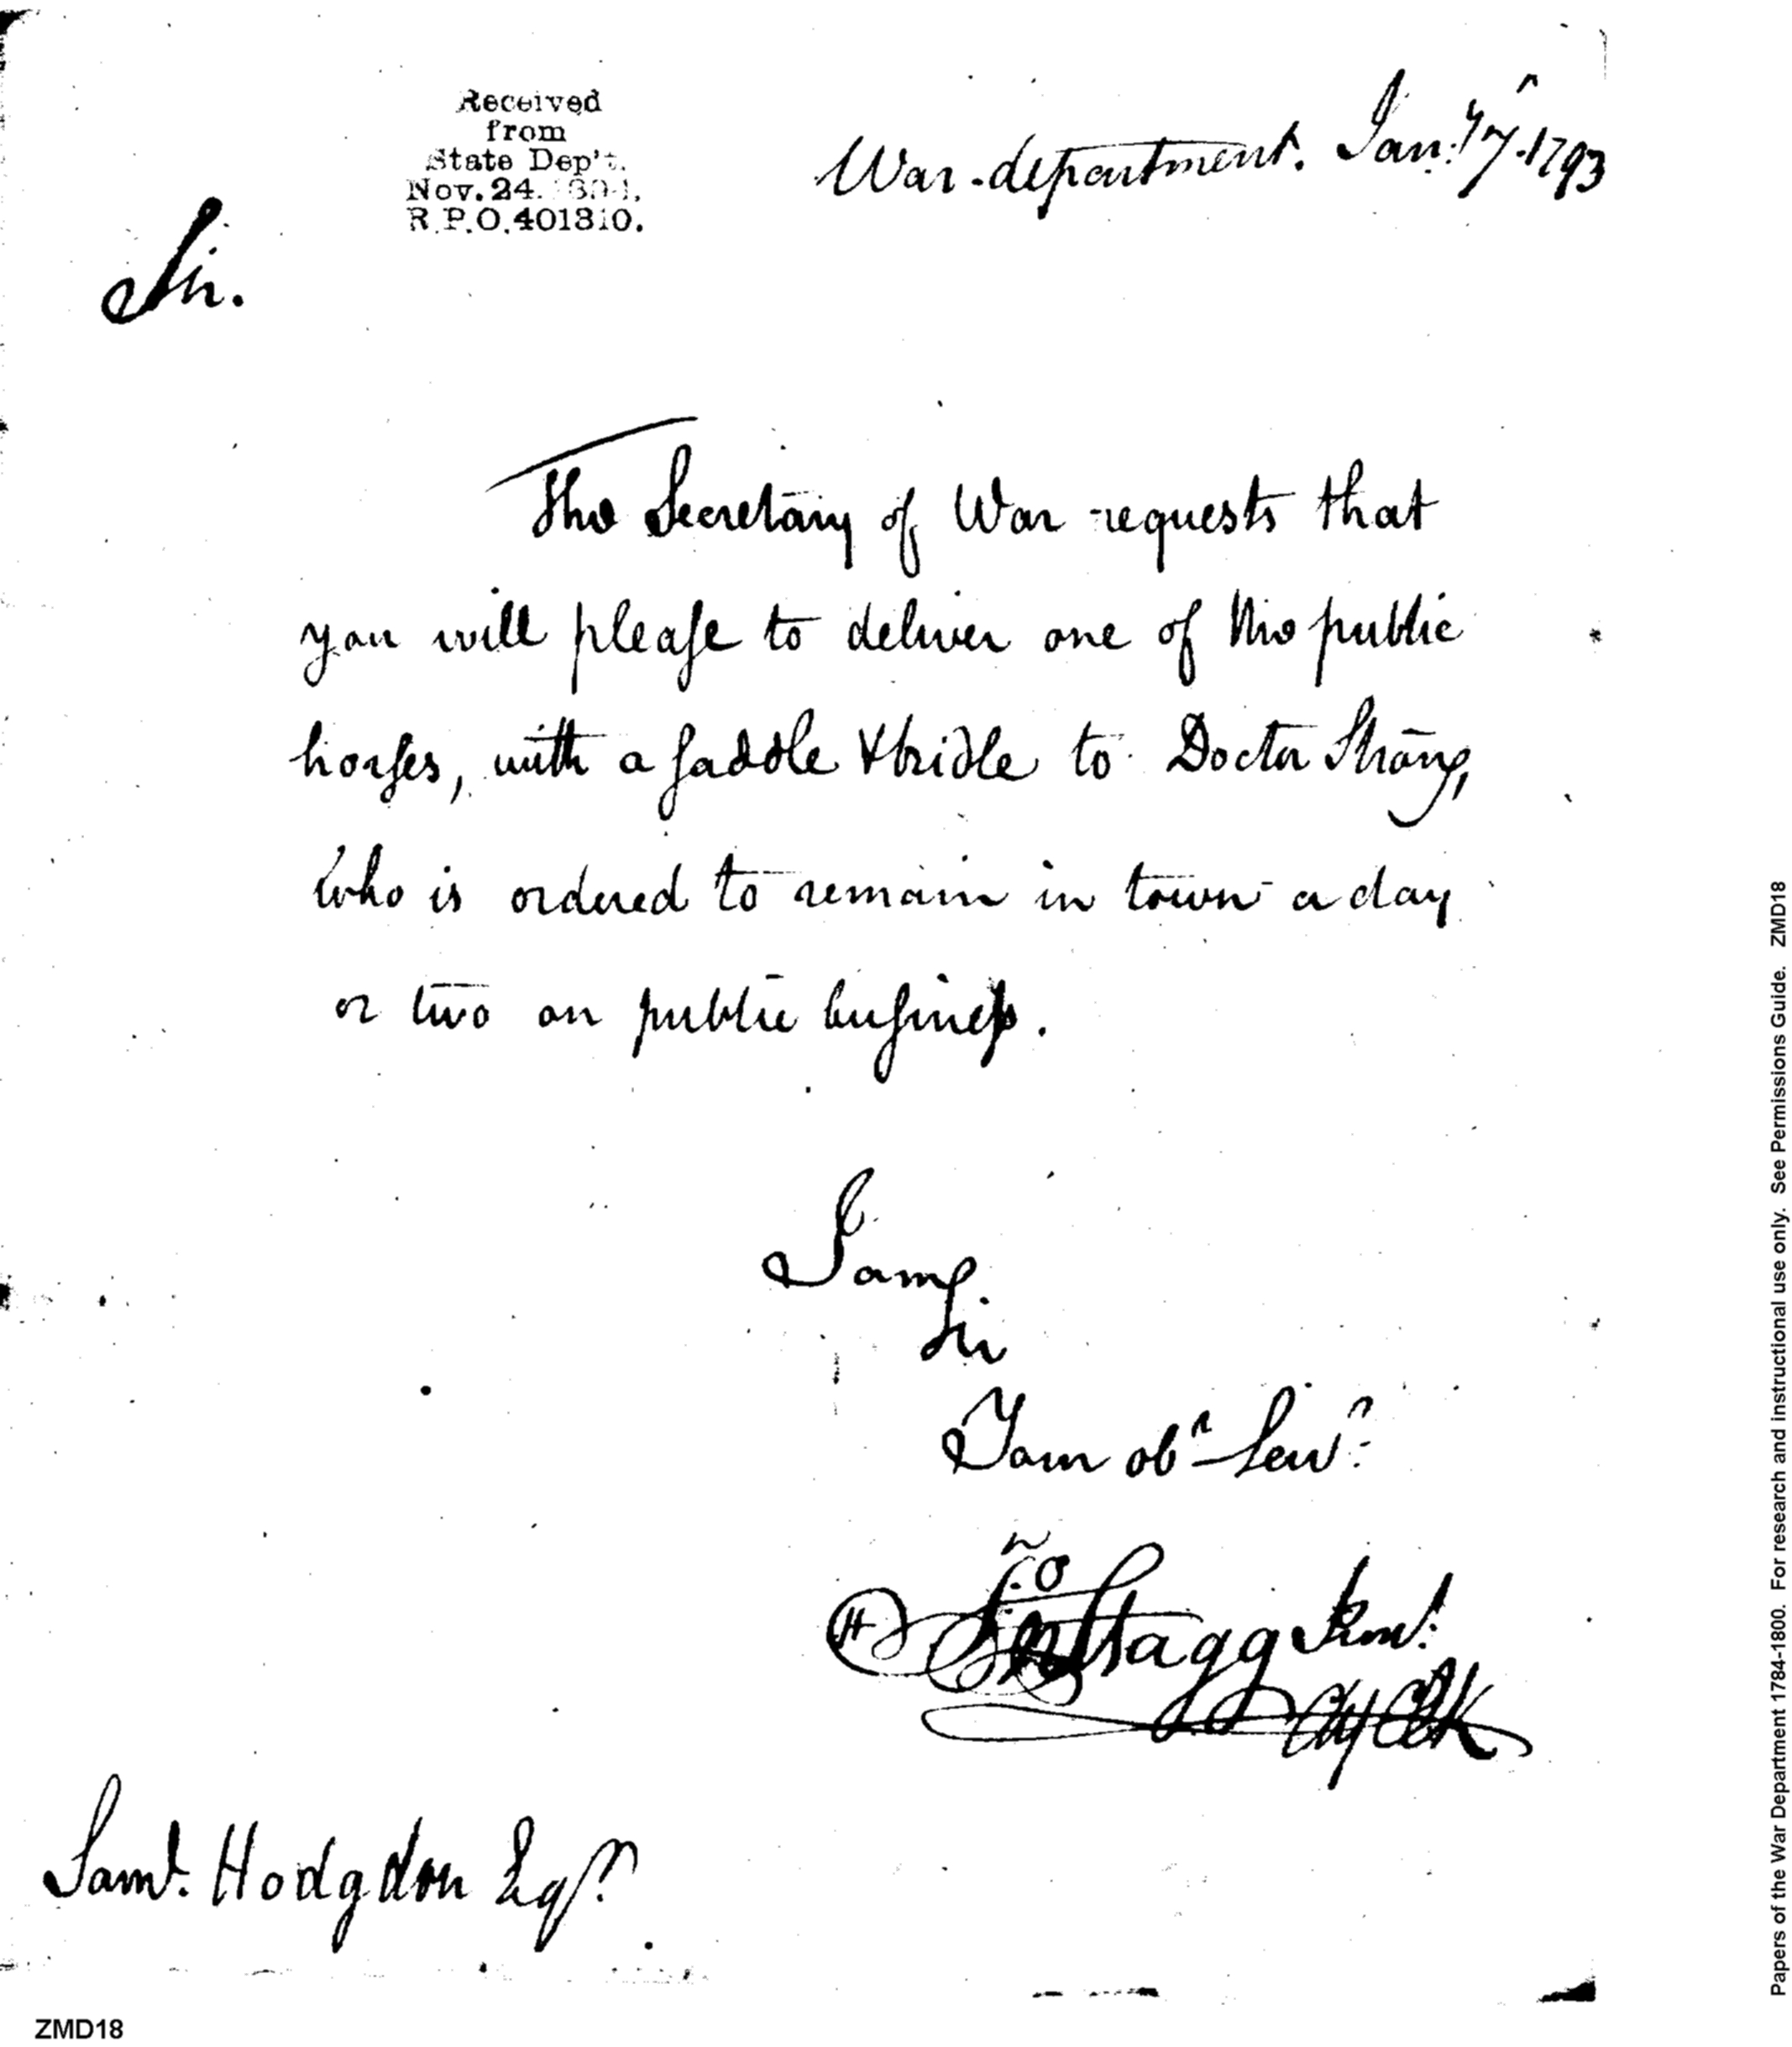 Received
from
State Dep't.
Nov. 24.
R.P.O. 401310.
War-department. Jan:y 7. 1793
Sir.
The Secretary of War requests that
you will please to deliver one of the public
horses, with a saddle & bridle to Doctor Strong,
who is ordered to remain in town a day
or two on public business.
I am,
Sir
Your obt Servt
Jno Stagg Junr.
Chf Clk
Saml. Hodgdon Esqr.
ZMD18
Papers of the War Department 1784-1800. For research and instructional use only. See Permissions Guide. ZMD18